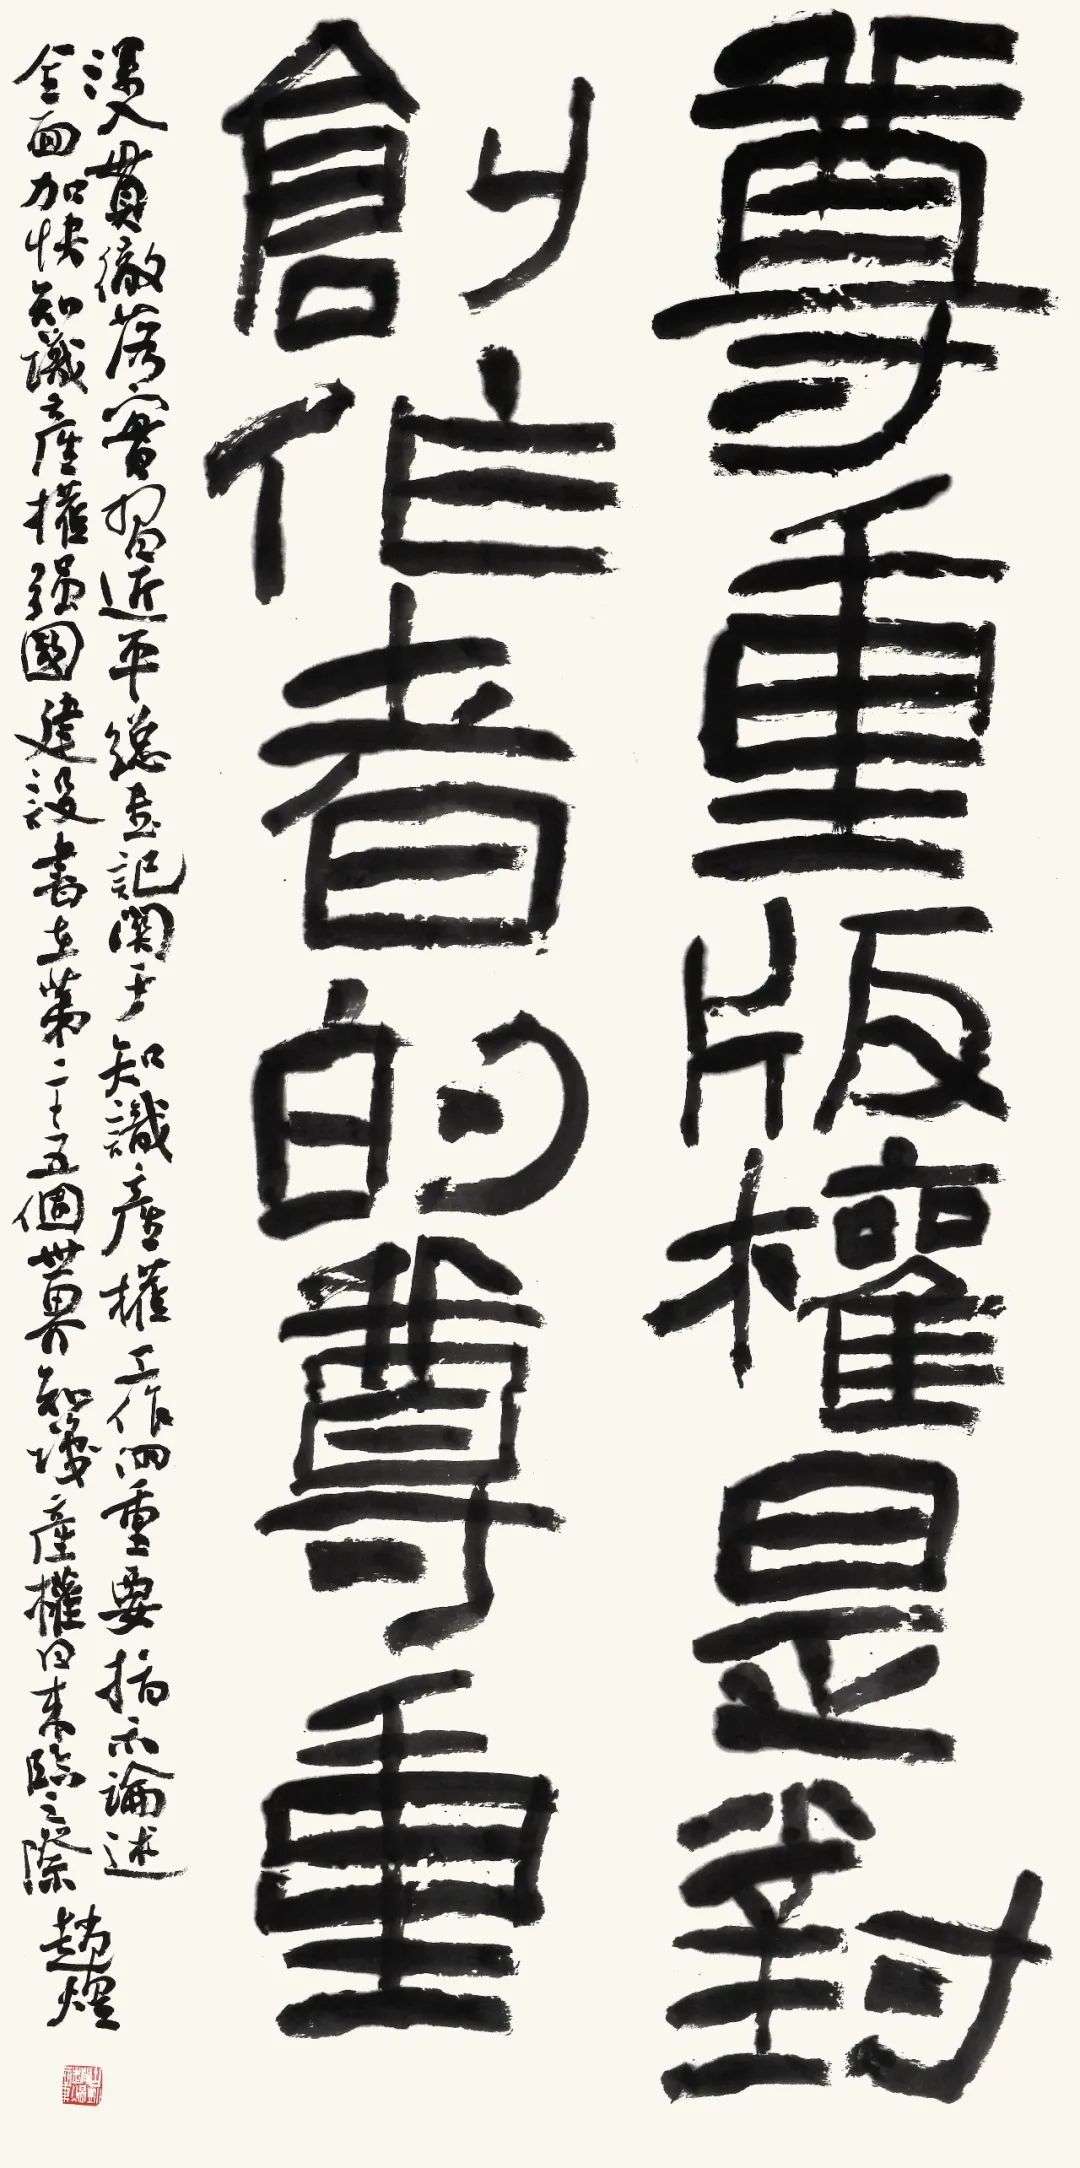 尊重版權是對
創作者的尊重
深入貫徹落實習近平總書記關于知識產權工作的重要指示論述
全面加快知識產權强國建設書在第二十五個世界知識產權日來臨之際
趙煜